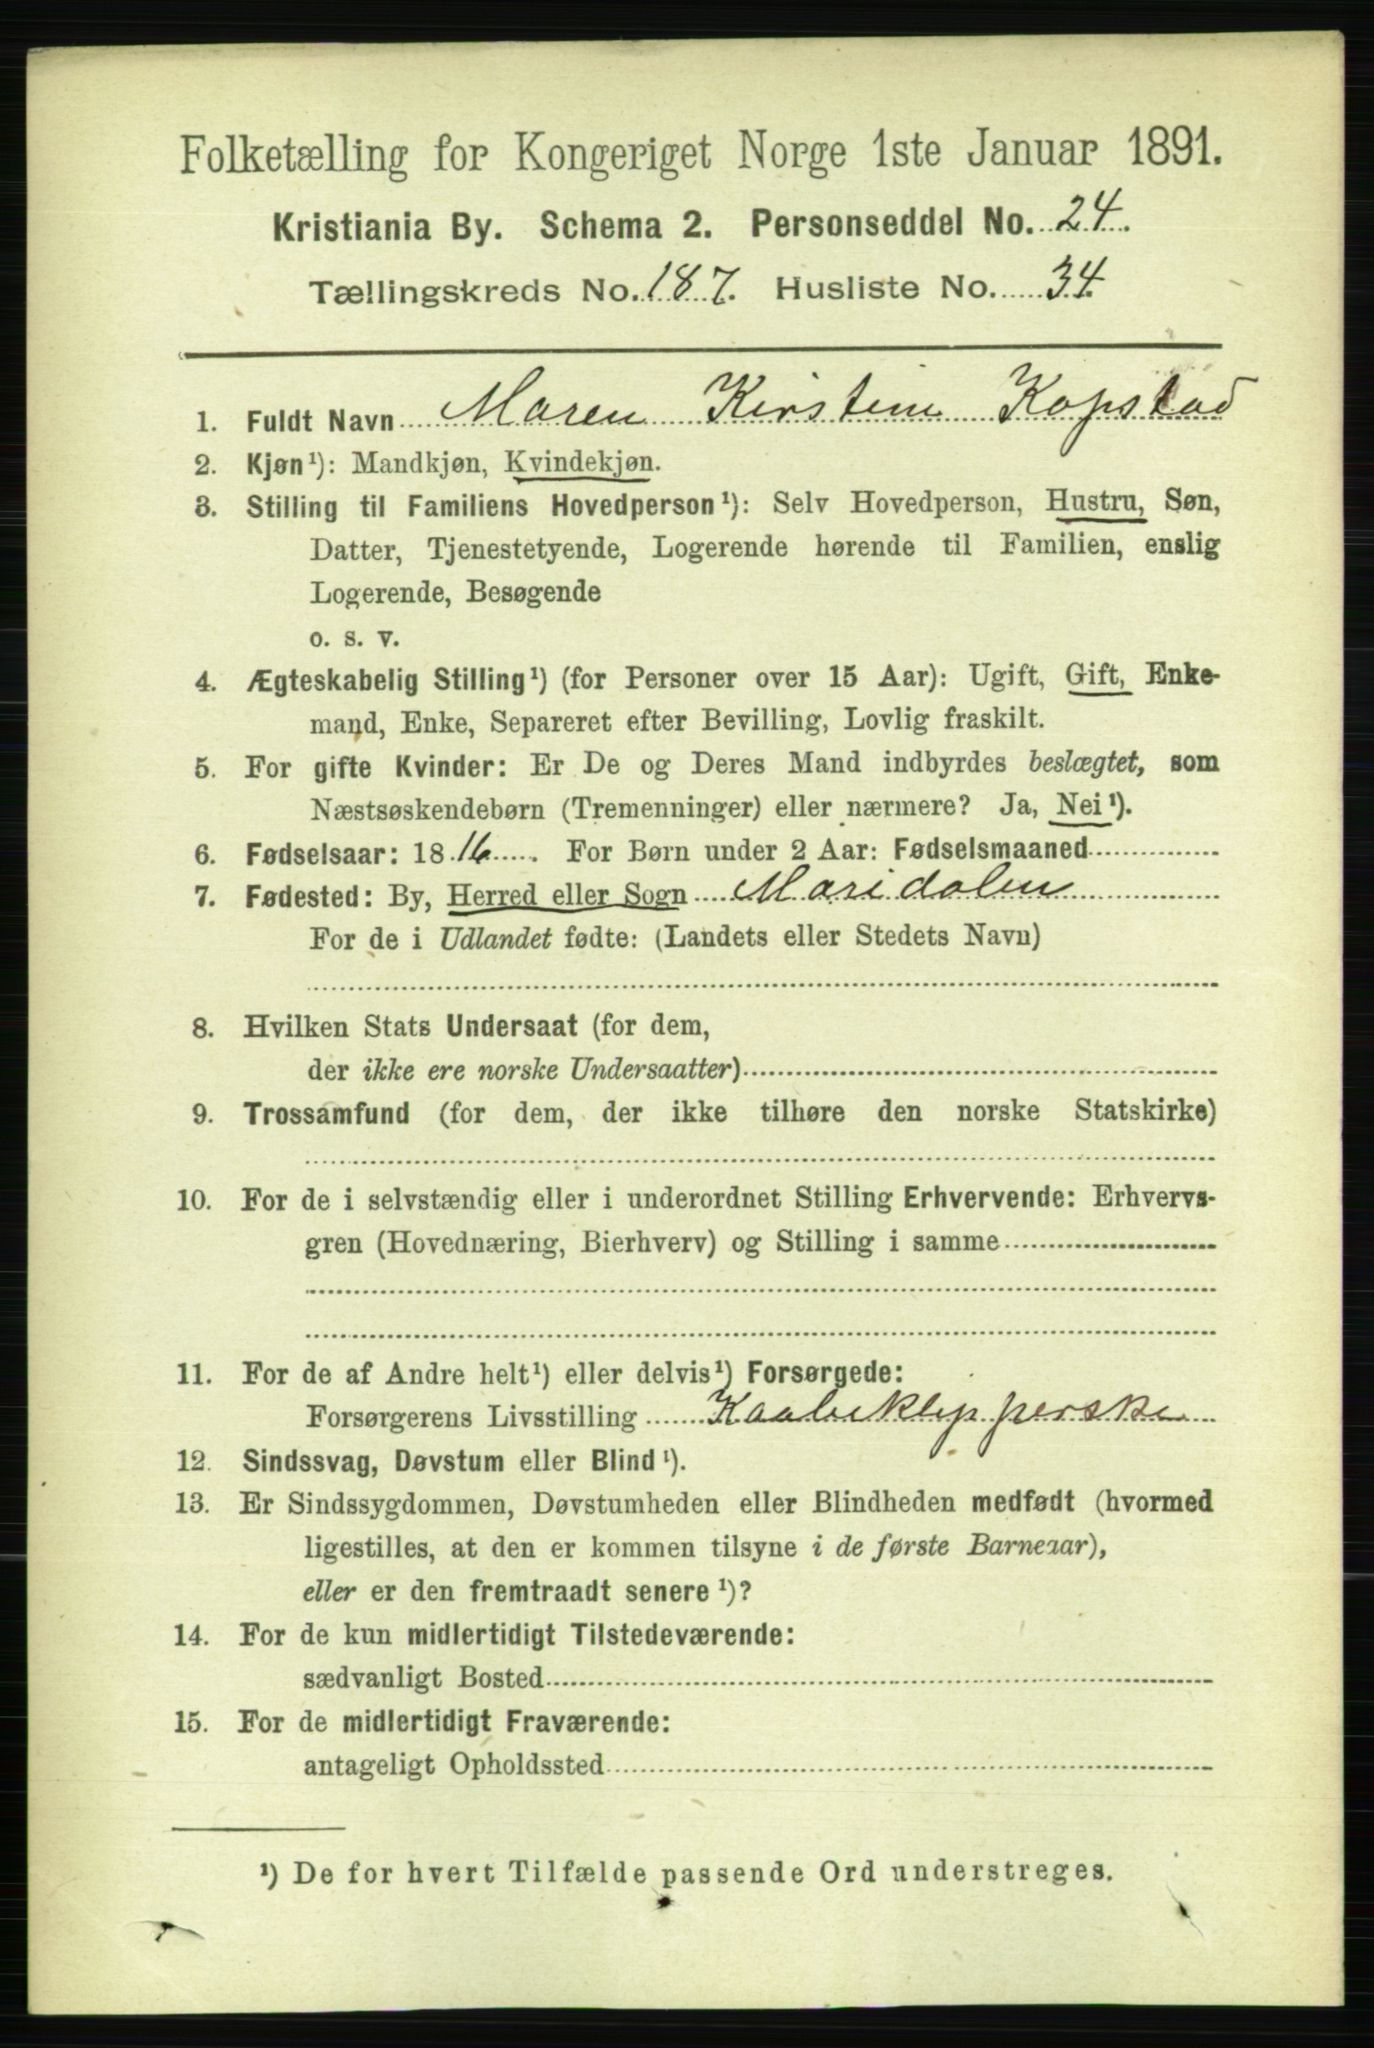 Folketælling for Kongeriget Norge 1ste Januar 1891.
Kristiania By. Schema 2. Personseddel No. 24.
Tællingskreds No. 187. Husliste No. 34.
1. Fuldt Navn Maren Kirstine Kopstad
2. Kjøn¹): Mandkjøn, Kvindekjøn.
3. Stilling til Familiens Hovedperson¹): Selv Hovedperson, Hustru, Søn,
Datter, Tjenestetyende, Logerende hørende til Familien, enslig
Logerende, Besøgende
o. s. v.
4. Ægteskabelig Stilling¹) (for Personer over 15 Aar): Ugift, Gift, Enke-
mand, Enke, Separeret efter Bevilling, Lovlig fraskilt.
5. For gifte Kvinder: Er De og Deres Mand indbyrdes beslægtet, som
Næstsøskendebørn (Tremenninger) eller nærmere? Ja, Nei¹).
6. Fødselsaar: 1816. For Børn under 2 Aar: Fødselsmaaned
7. Fødested: By, Herred eller Sogn Maridalen
For de i Udlandet fødte: (Landets eller Stedets Navn)
8. Hvilken Stats Undersaat (for dem,
der ikke ere norske Undersaatter)
9. Trossamfund (for dem, der ikke tilhøre den norske Statskirke)
10. For de i selvstændig eller i underordnet Stilling Erhvervende: Erhvervs-
gren (Hovednæring, Bierhverv) og Stilling i samme
11. For de af Andre helt¹) eller delvis¹) Forsørgede:
Forsørgerens Livsstilling
12. Sindssvag, Døvstum eller Blind¹).
13. Er Sindssygdommen, Døvstumheden eller Blindheden medfødt (hvormed
ligestilles, at den er kommen tilsyne i de første Barneaar),
eller er den fremtraadt senere¹)?
14. For de kun midlertidigt Tilstedeværende:
sædvanligt Bosted
15. For de midlertidigt Fraværende:
antageligt Opholdssted
¹) De for hvert Tilfælde passende Ord understreges.